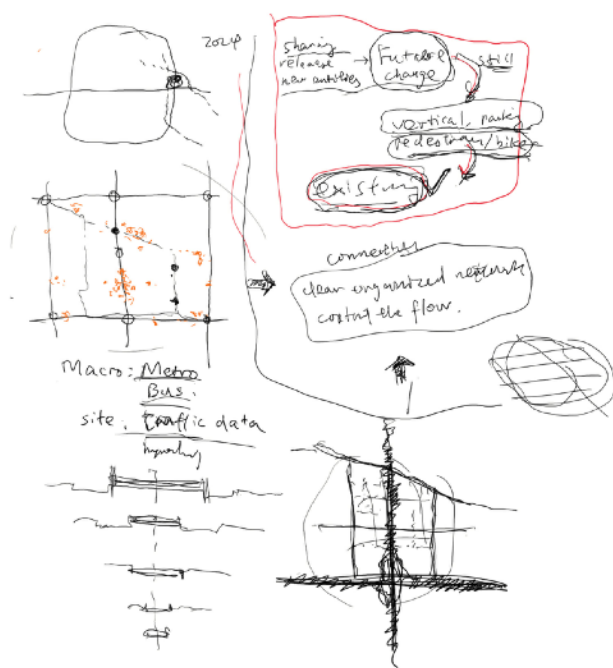 sharing
release
new
Future
change
still
vertical, parking
pedestrian/bike
existing
connectivity
clear organized network
control the flow.
Macro: Metro
Bus.
site: traffic data